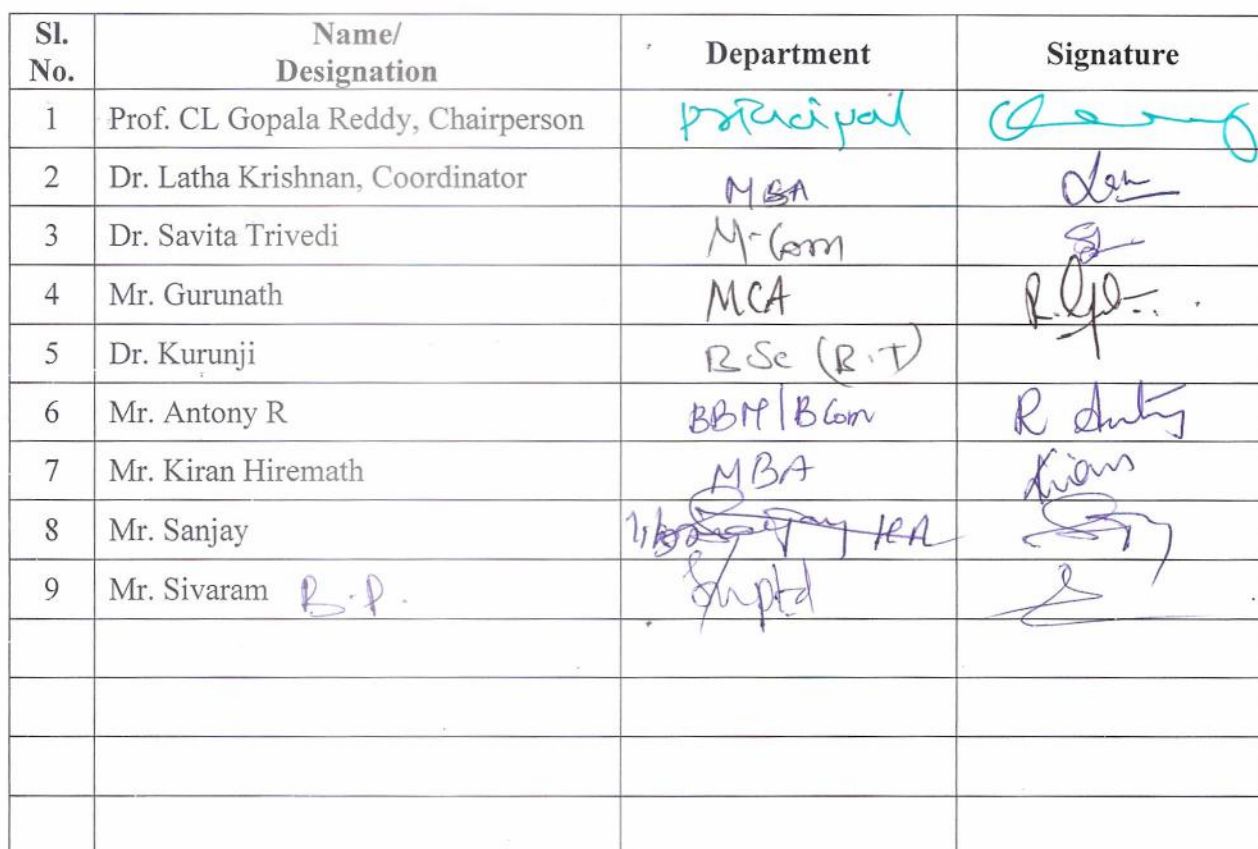 Sl. No. Name/ Designation Department Signature
1 Prof. CL Gopala Reddy, Chairperson Principal
2 Dr. Latha Krishnan, Coordinator MBA
3 Dr. Savita Trivedi M.Com
4 Mr. Gurunath MCA
5 Dr. Kurunji BSc (B.T)
6 Mr. Antony R BBM/BCom R Antony
7 Mr. Kiran Hiremath MBA Kiran
8 Mr. Sanjay
9 Mr. Sivaram B.P. Suptd